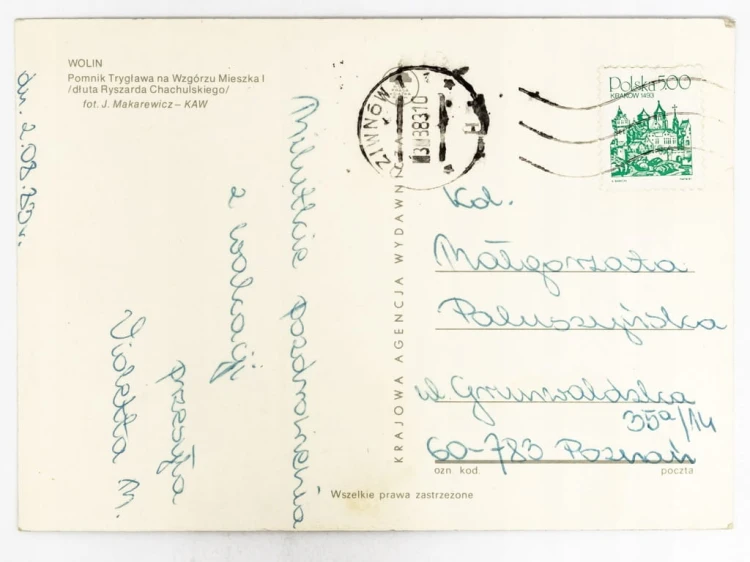 WOLIN
Pomnik Trygława na Wzgórzu Mieszka I
/dłuta Ryszarda Chachulskiego/
fot. J. Makarewicz – KAW
dn. 2.08.83r.
Milutkie pozdrowienia
z wakacji
przesyła
M.
DZIWNÓW
Polska 500
KRAKÓW 1493
KRAJOWA AGENCJA WYDAWNICZA
Kol.
Małgorzata
Paluszyńska
ul. Grunwaldzka
35a/14
60-783 Poznań
ozn kod.
poczta
Wszelkie prawa zastrzeżone